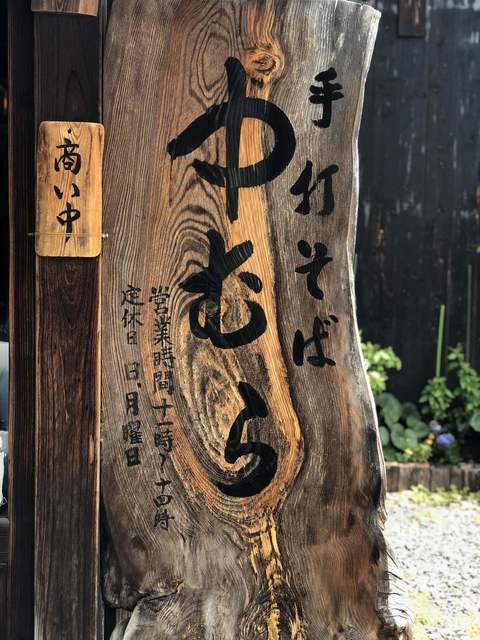 手打そば
中むら
営業時間 十一時〜十四時
定休日 日、月曜日
商い中